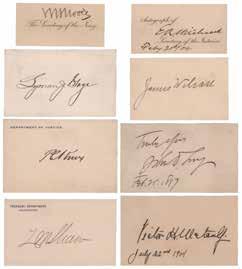 W H Moody
The Secretary of the Navy.
Autograph of
E A Hitchcock
Secretary of the Interior
Feby 20th/02
Lyman J. Gage
James Wilson
DEPARTMENT OF JUSTICE
P C Knox
Truly yours
John D Long
TREASURY DEPARTMENT
L M Shaw
Victor H. Metcalf
July 22nd 1904